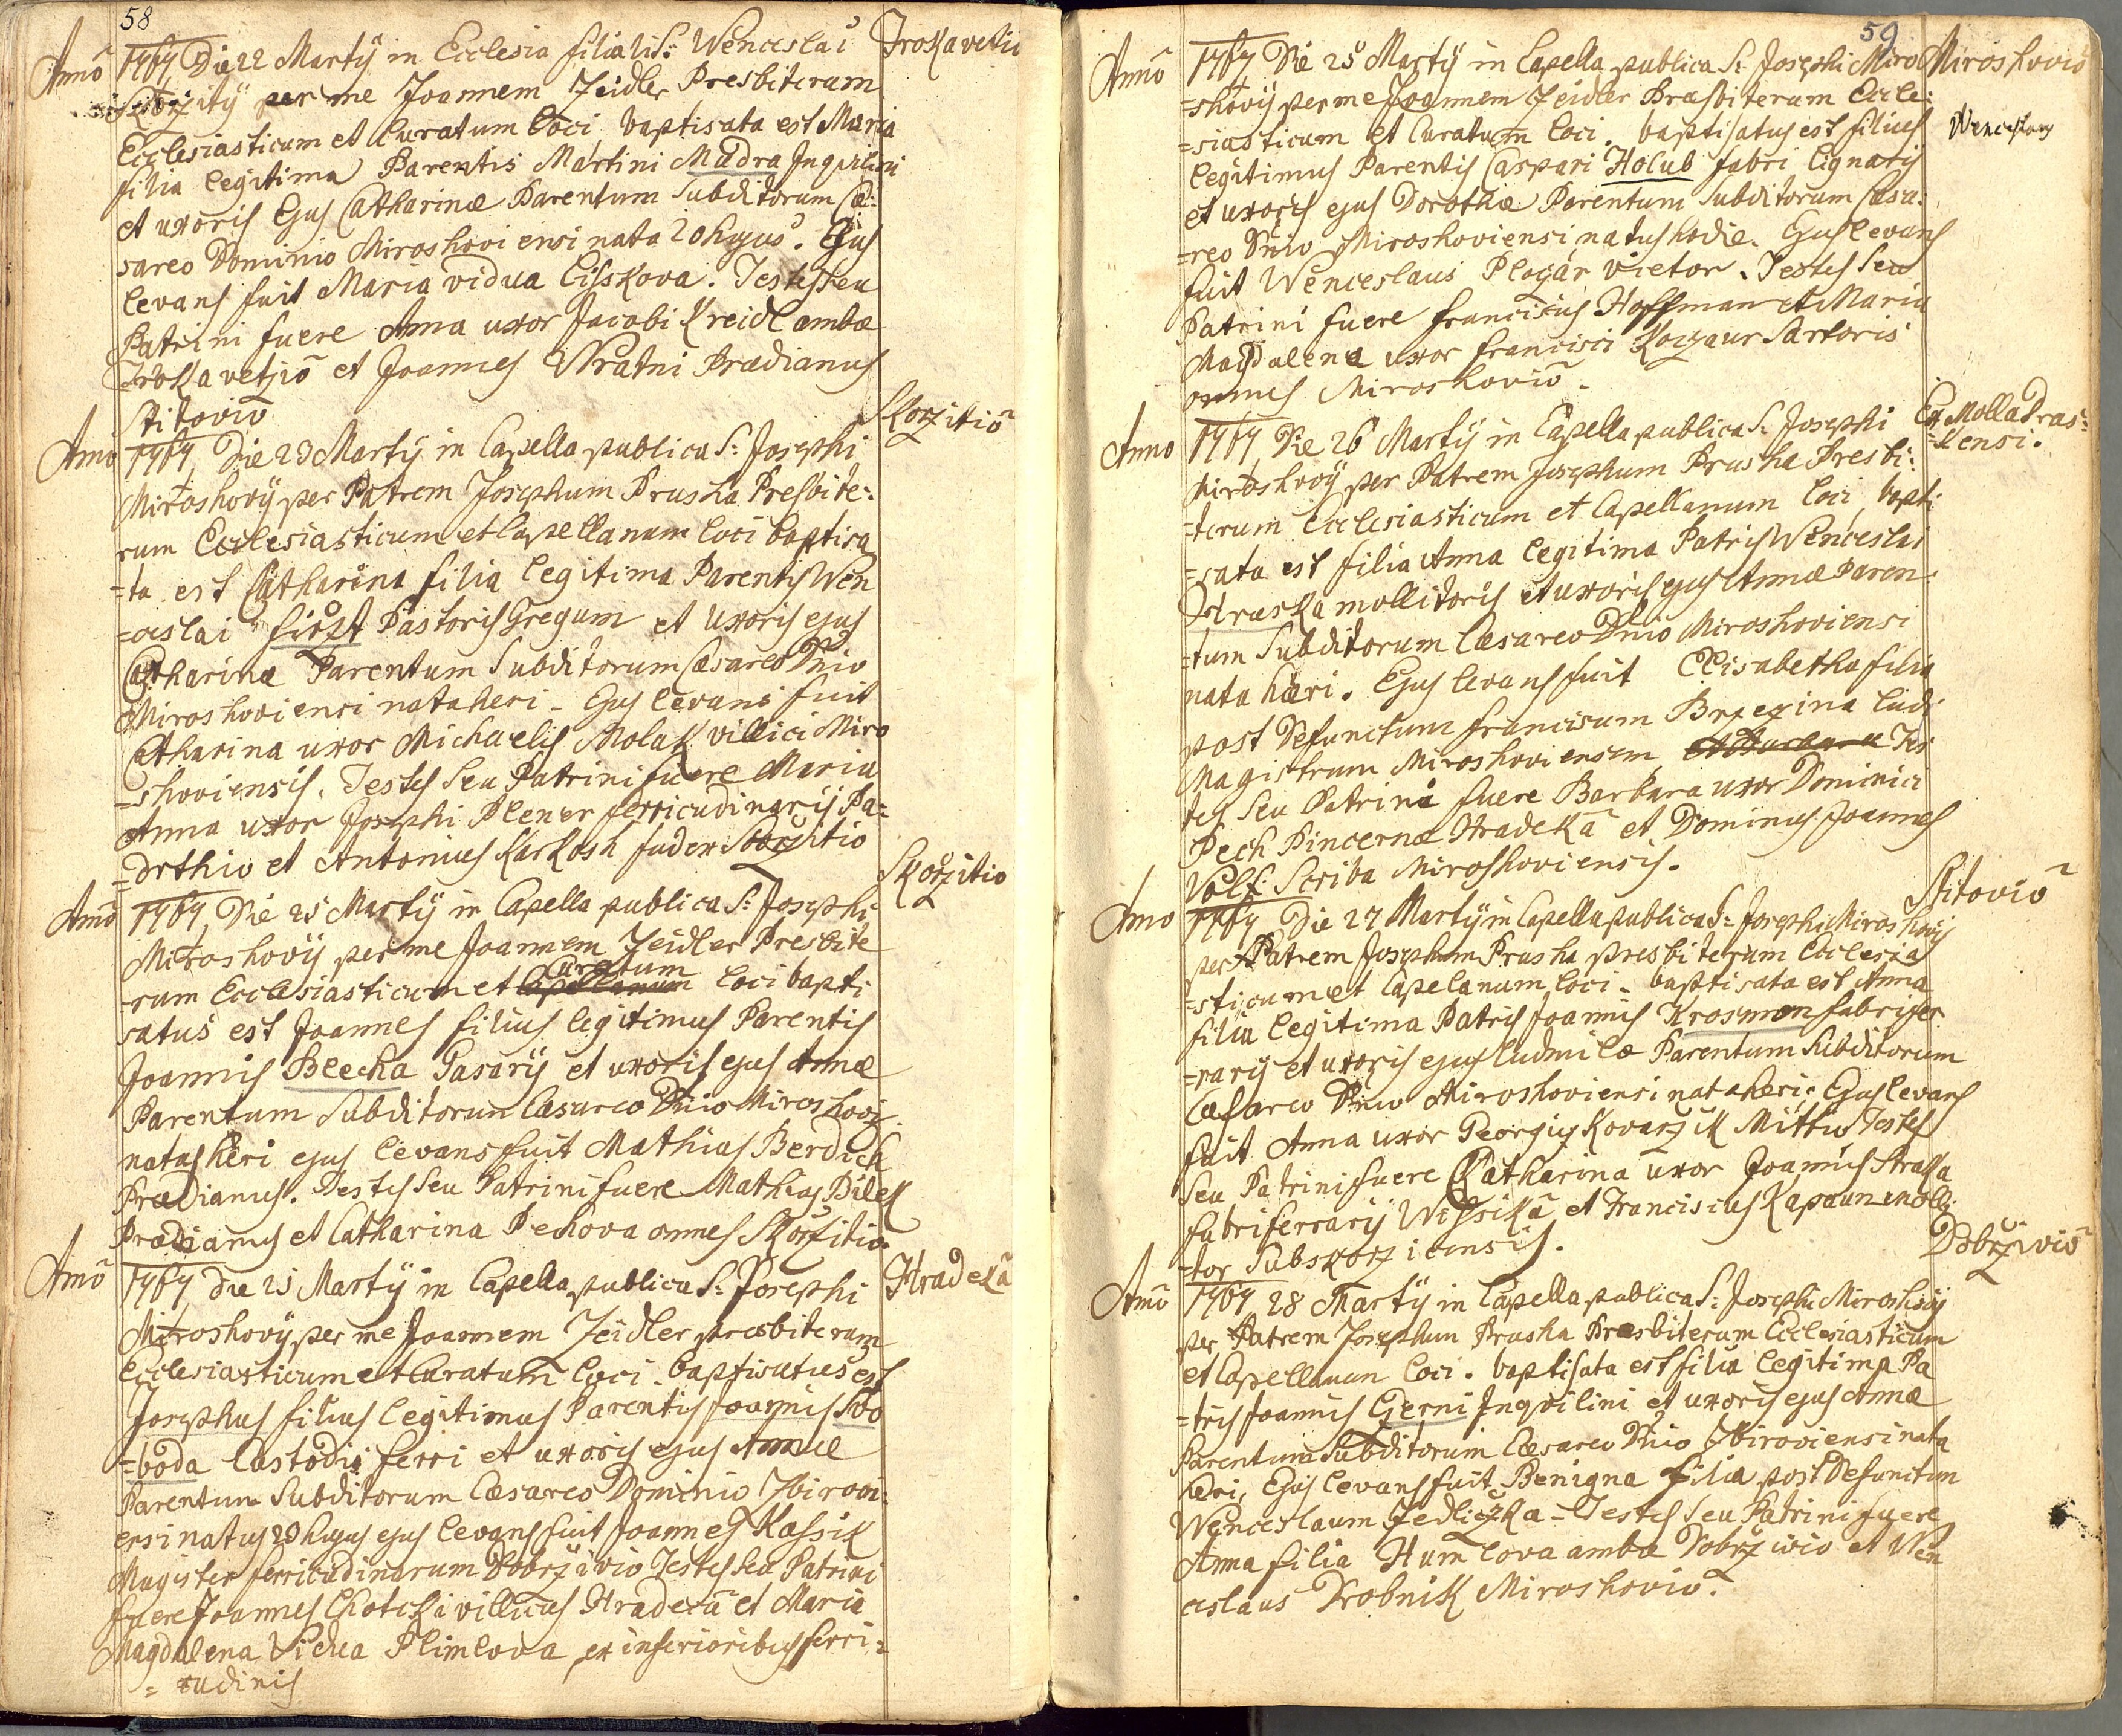 58
Anno 1767 Die 22 Martÿ in Ecclesia filiali S: Wenceslai Trokavetiu
per me Joannem Zeidler Presbiterum
Ecclesiasticum et Curatum Loci baptisata est Maria
filia legitima Parentis Martini Mudra Inquilini
et uxoris Ejus Catharinæ Parentum Subditorum Cæ=
sareo Dominio Miroshoviensi nata 20 hujus. Ejus
levans fuit Maria vidua Lisskova. Testes seu
Patrini fuere Anna uxor Jacobi Kreidl ambæ
Trokavetziō et Joannes Wratni Prædianus
Stitoviō
Skorzitiō
Anno 1767 Die 23 Martÿ in Capella publica S: Josephi
Miroshovÿ per Patrem Josephum Prusha Presbite:
rum Ecclesiasticum et Capellanum Loci baptisa
=ta est Catharina filia legitima Parentis Wen
=ceslai Firszt Pastoris Gregum et Uxoris ejus
Catharinæ Parentum Subditorum Cæsareo Dnio
Miroshoviensi nata heri. Ejus levans fuit
Catharina uxor Michaelis Molak villici Miro
=shoviensis. Testes Seu Patrini fuere Maria
Anna uxor Josephi Plener ferricudinarÿ Pa=
=drthiu et Antonius Karkosh Skorzitio
Skorzitio
Anno 1767 Die 25 Martÿ in Capella publica S: Josephi
Miroshovÿ per me Joannem Zeidler Presbite
=rum Ecclesiasticum et Capellanum Curatum Loci bapti
satus est Joannes filius legitimus Parentis
Joannis Blecha Gasarÿ et uxoris ejus Annæ
Parentum Subditorum Cæsareo Dnio Miroshovi:
natus heri ejus levans fuit Mathias Berdich
Prædianus. Testes Seu Patrini fuere Mathias Bilek
Prædianus et Catharina Pechova omnes Skorzitio
Hradekā
Anno 1767 Die 25 Martÿ in Capella publica S: Josephi
Miroshovÿ per me Joannem Zeidler presbiterum
Ecclesiasticum et Curatum Loci baptisatus est
Josephus filius legitimus Parentis Joannis Swo
=boda Custodis ferri et uxoris ejus Annæ
Parentum Subditorum Cæsareo Dominio Zbirovi:
ensi natus 20 hujus ejus levans fuit Joannes Kassik
Magister ferricudinarum Dobrziviō Testes seu Patrini
fuere Joannes Chotcki villicus Hradecā et Maria
Magdalena Vidua Plimlova ex inferioribus ferri=
= cudinis
59
Anno 1767 Die 25 Martÿ in Capella publica S: Josephi Miro Miroshoviō
=shovÿ per me Joannem Zeidler Præsbiterum Eccle:
=siasticum et Curatum Loci. baptisatus est filius Wenceslaus
legitimus Parentis Caspari Holub fabri Lignarÿ
et uxoris ejus Dorotheæ Parentum Subditorum Cæsa:
=reo Dniō Miroshoviensi natus hodie. Ejus levans
fuit Wenceslaus Plogar vietor. Testes seu
Patrini fuere Franciscus Hoffman et Maria
Magdalena uxor Francisci Koczaur Sartoris
omnes Miroshoviō.
Ex Molla Dras=
=kensi.
Anno 1767 Die 26 Martÿ in Capella publica S: Josephi
Miroshovÿ per Patrem Josephum Prusha Presbi:
=terum Ecclesiasticum et Capellanum Loci bapti
=sata est filia Anna legitima Patris Wenceslai
Straska mollitoris et uxoris ejus Annæ Paren:
=tum Subditorum Cæsareo Dnio Miroshoviensi
nata hæri. Ejus levans fuit Elisabetha filia
post Defunctum Franciscum Brzezina ludi
Magistrum Miroshoviensem Tes
tes seu Patrini fuere Barbara uxor Dominici
Pech Pincernæ Hradekā et Dominus Joannes
Volf: Scriba Miroshoviensis.
Stitoviō
Anno 1767 Die 27 Martÿ in Capella publica S: Josephi Miroshovÿ
per Patrem Josephum Prusha presbiterum Ecclesia
=sticum et Capelanum Loci. baptisata est Anna
filia legitima Patris Joannis Krosmon fabrifer
=rarÿ et uxoris ejus Ludmilæ Parentum Subditorum
Cæsareo Dnio Miroshoviensi nata heri. Ejus levans
fuit Anna uxor Georgij Kovarzik Mittiō Testes
Seu Patrini fuere Catharina uxor Joannis Straka
fabriferrarÿ Wissikā et Franciscus Kapaun molli
=tor Subskorzicensis.
Dobrziviō
Anno 1767 28 Martÿ in Capella publica S: Josephi Miroshovÿ
per Patrem Josephum Prusha Præsbiterum Ecclesiasticum
et Capellanum Loci. baptisata est filia legitima Pa
=tris Joannis Gerni Inqvilini et uxoris ejus Annæ
Parentum Subditorum Cæsareo Dnio Zbiroviensi nata
heri, Ejus levans fuit Benigna filia post Defunctum
Wenceslaum Jedliczka. Testes Seu Patrini fuere
Anna filia Humlova ambæ Dobrziviō et Wen
ceslaus Drobnik Miroshoviō.